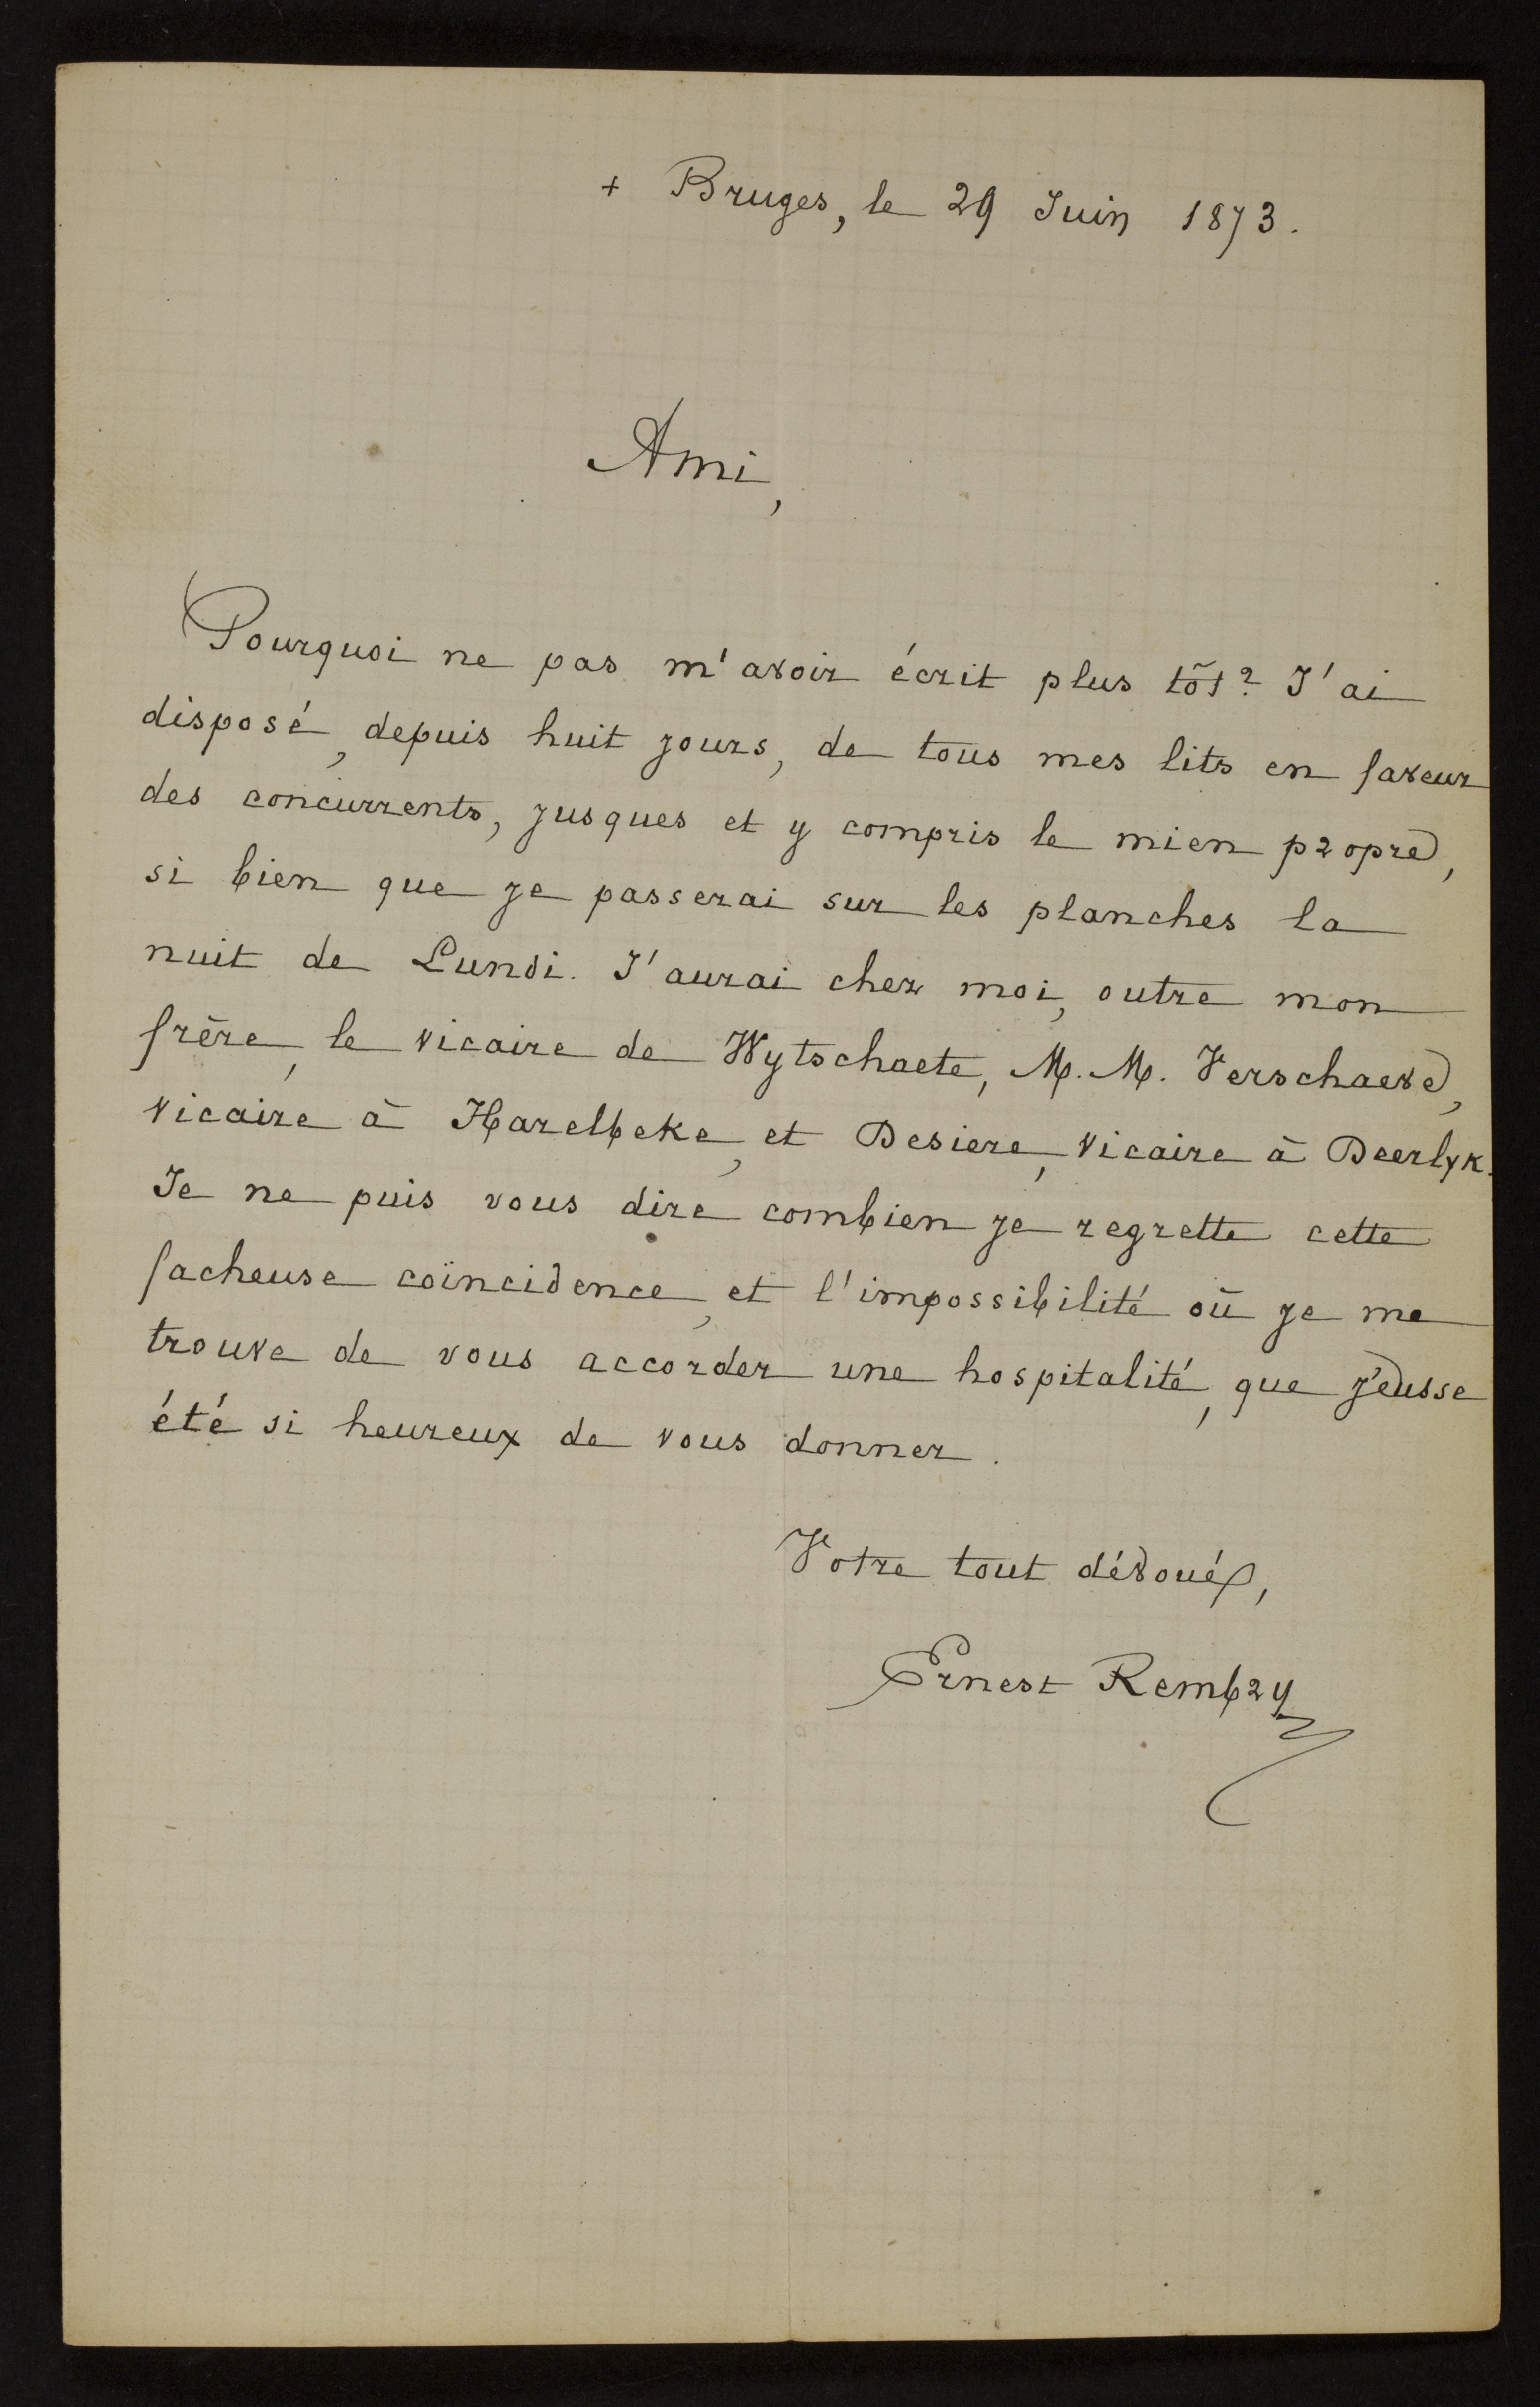 + Bruges, le 29 Juin 1873.
Ami,
Pourquoi ne pas m'avoir écrit plus tôt? J'ai
disposé, depuis huit jours, de tous mes lits en faveur
des concurrents, jusques et y compris le mien propre,
si bien que je passerai sur les planches la
nuit de Lundi. J'aurai chez moi, outre mon
frère, le vicaire de Wytschaete, M. M. Verschaeve,
vicaire à Harelbeke, et Desiere, vicaire à Deerlyk.
Je ne puis vous dire combien je regrette cette
facheuse coïncidence, et l'impossibilité où je me
trouve de vous accorder une hospitalité, que j'eusse
été si heureux de vous donner.
Votre tout dévoué,
Ernest Rembry